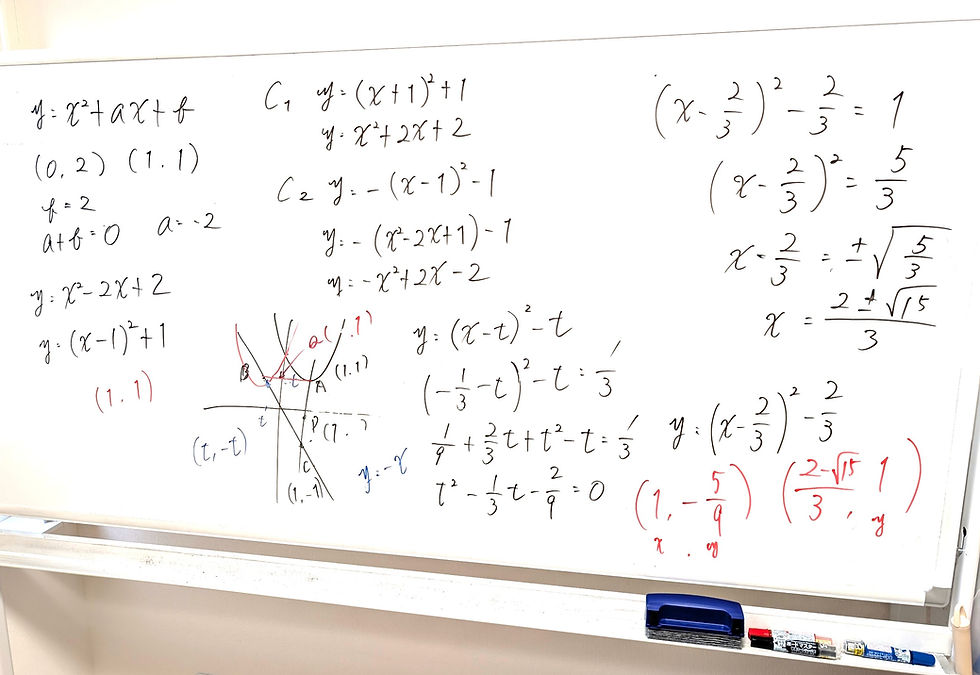 y=x²+ax+b
(0, 2) (1, 1)
b=2
a+b=0 a=-2
y=x²-2x+2
y=(x-1)²+1
(1, 1)
C₁ y=(x+1)²+1
y=x²+2x+2
C₂ y=-(x-1)²-1
y=-(x²-2x+1)-1
y=-x²+2x-2
Q( , 1)
B
A
(1, 1)
t
P(1, )
C
(1, -1)
(t, -t)
y=-x
y=(x-t)²-t
(-1/3-t)²-t=1/3
1/9+2/3t+t²-t=1/3
t²-1/3t-2/9=0
(x-2/3)²-2/3=1
(x-2/3)²=5/3
x-2/3=±√5/3
x=2±√15/3
y=(x-2/3)²-2/3
(1, -5/9) (2-√15/3, 1)
x , y y
ボードマスター